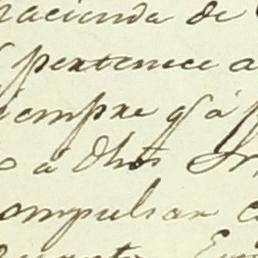 hacienda de
pertenece a
siempre q.e á
á dhos Sr
compulsar